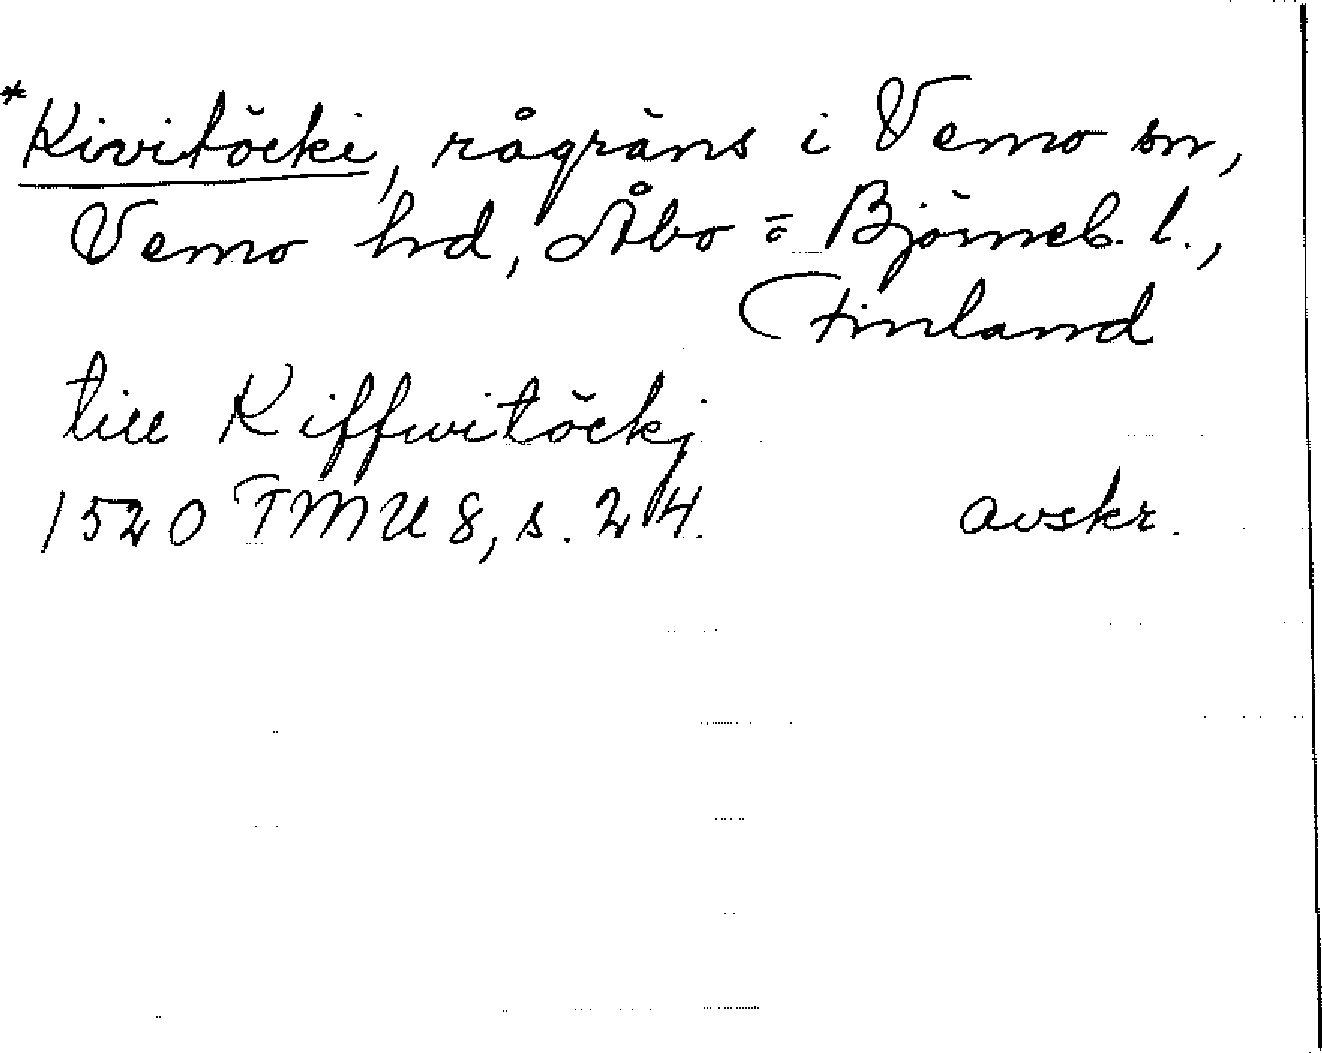 *Kivitöcki, rågräns i Vemo sn,
Vemo hd, Åbo = Björneb. l.,
Finland
till Kiffwitöckj
1520 FMU 8, s. 24. avskr.